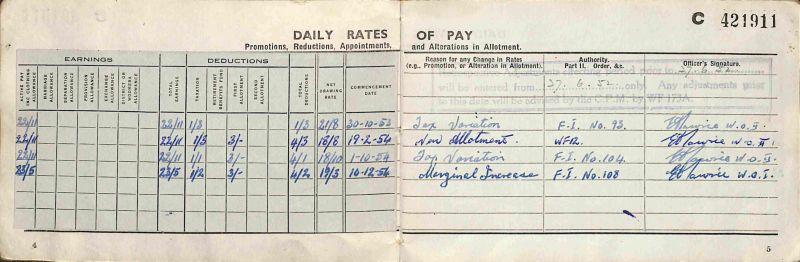 DAILY RATES
Promotions, Reductions, Appointments,
EARNINGS
DEDUCTIONS
ACTIVE PAY INC. CLOTHING ALLOWANCE
MARRIAGE ALLOWANCE
SEPARATION ALLOWANCE
PROVISION ALLOWANCE
EXCHANGE ALLOWANCE
DISTRICT OR WORKERS ALLOWANCE
TOTAL EARNINGS
TAXATION
RETIREMENT BENEFITS FUND
FIRST ALLOTMENT
SECOND ALLOTMENT
TOTAL DEDUCTIONS
NET DRAWING RATE
COMMENCEMENT DATE
22/11 22/11 1/3 1/3 21/8 30-10-53
22/11 22/11 1/3 3/- 4/3 18/8 19-2-54
22/11 22/11 1/1 3/- 4/1 18/10 1-10-54
23/5 23/5 1/2 3/- 4/2 19/3 10-12-54
4
C 421911
OF PAY
and Alterations in Allotment.
Reason for any Change in Rates
(e.g., Promotion, or Alteration in Allotment).
Authority.
Part II. Order, &c.
Officer's Signature.
Adjustments effecting period prior to
will be entered from 27.6.52 only. Any adjustments prior
to this date will be advised by the C.P.M. by WF 175A.
Tax Variation F.I. No. 93. W.O.II
New Allotment. WF12. W.O.II.
Tax Variation F.I. No. 104. W.O.II.
Marginal Increase F.I. No. 108 W.O.I.
5